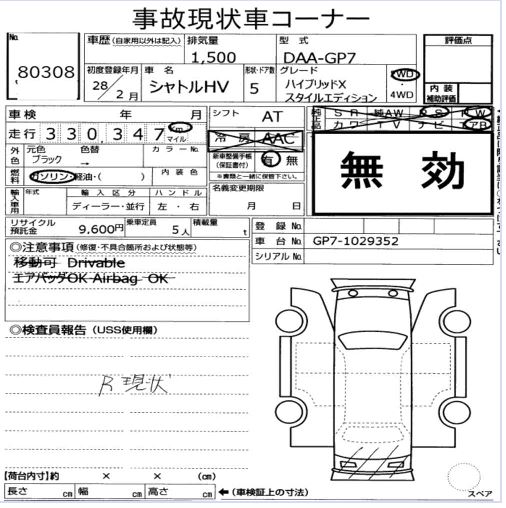 事故現状車コーナー
No. 80308
車歴 (自家用以外は記入) 排気量 1,500 型式 DAA-GP7 評価点
初度登録年月 28/2月 車名 シャトルHV 形状・ドア数 5 グレード ハイブリッドX スタイルエディション 2WD 4WD 内装 補助評価
車検 年 月 シフト AT 純正品 SR 純AW PS PW
走行 330,347 km マイル 冷房 AAC カワ TV ナビ エアB
外色 元色 ブラック 色替 → カラーNo. 新車整備手帳 (保証書付) 有 無 ※書類と一緒に保管下さい。 無効
燃料 ガソリン・軽油・( ) 内装色 名義変更期限 月 日
輸入車用 年式 輸入区分 ディーラー・並行 ハンドル 左・右
リサイクル預託金 9,600円 乗車定員 5人 積載量 t 登録No.
車台No. GP7-1029352
シリアルNo.
◎注意事項 (修復・不具合箇所および状態等)
移動可 Drivable
エアバッグOK Airbag OK
◎検査員報告 (USS使用欄)
R現状
【荷台内寸】約 × × (cm)
長さ cm 幅 cm 高さ cm ←(車検証上の寸法)
スペア